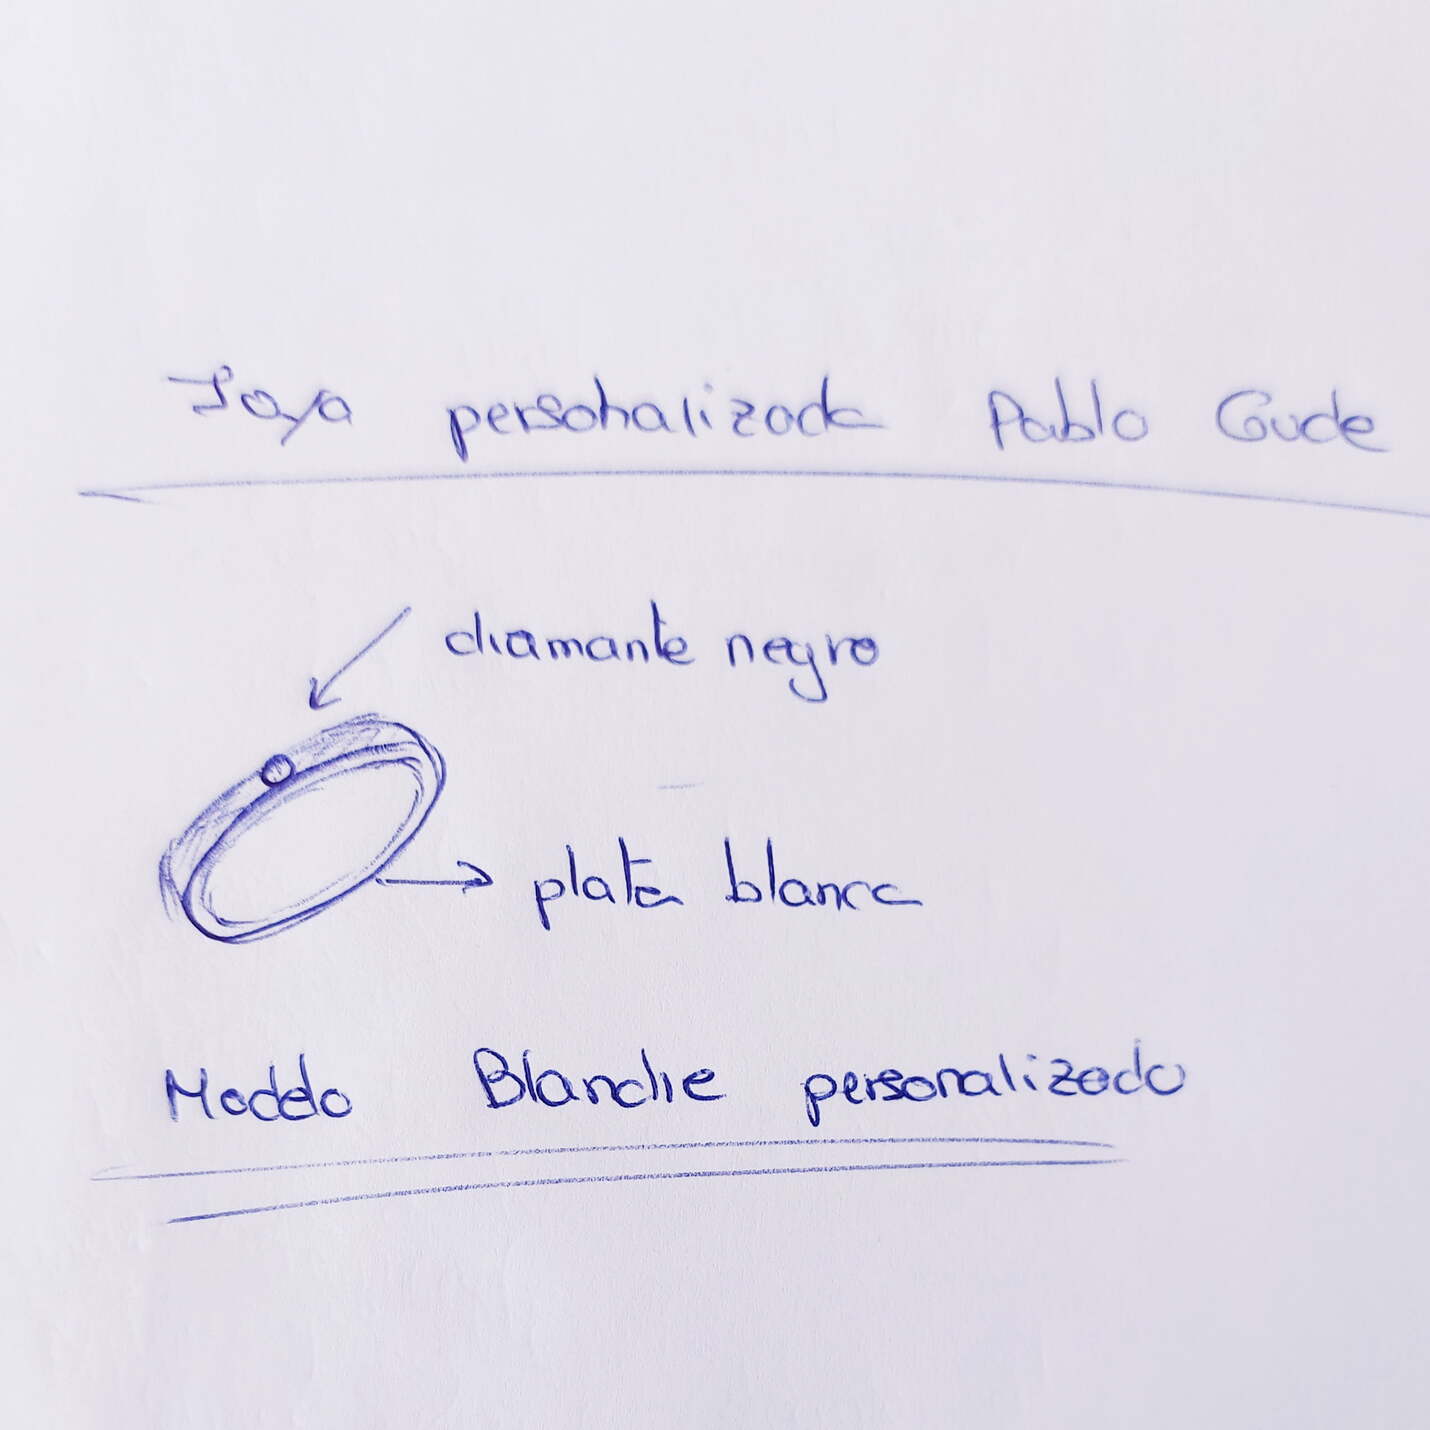 Joya personalizada Pablo Gude
diamante negro
plata blanca
Modelo Blanche personalizado